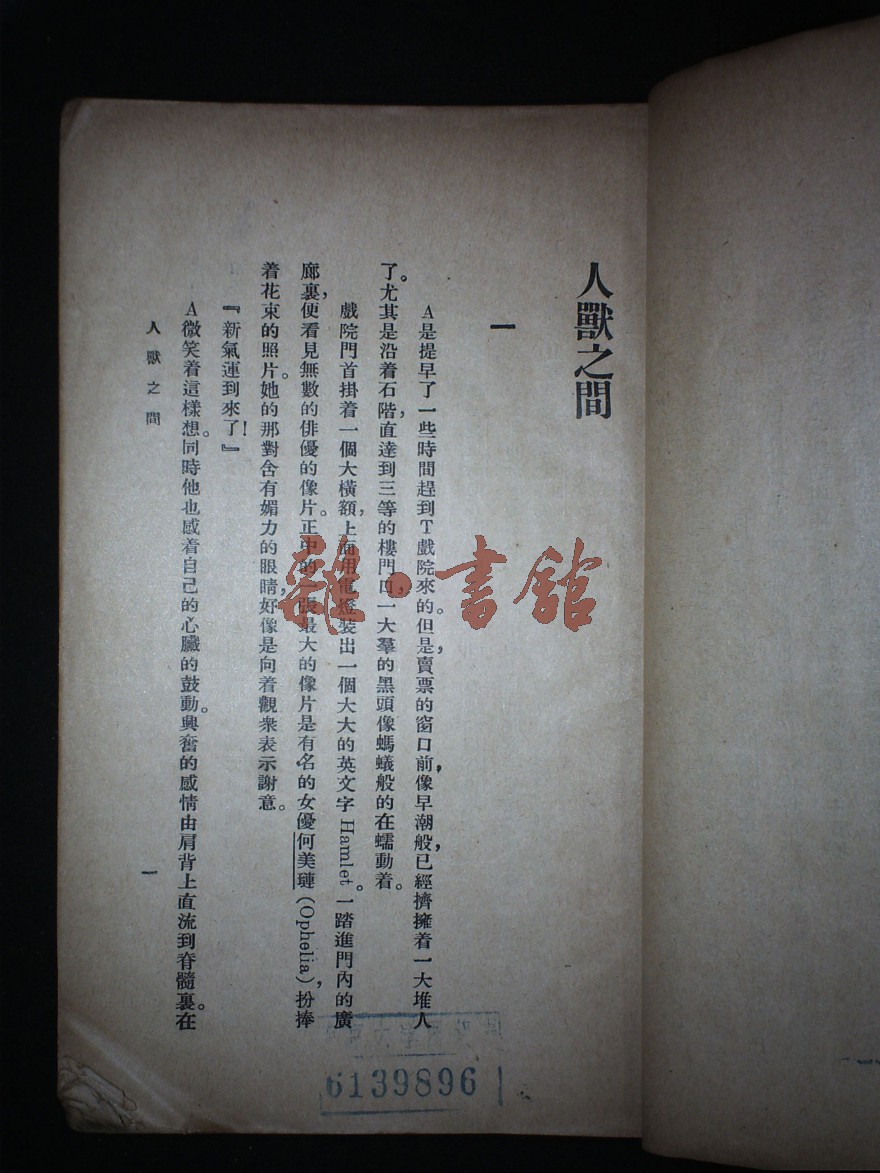 人獸之間
一
A是提早了一些時間趕到T戲院來的。但是，賣票的窗口前，像早潮般，已經擠擁着一大堆人
了。尤其是沿着石階，直達到三等的樓門口，一大羣的黑頭像螞蟻般的在蠕動着。
戲院門首掛着一個大橫額，上面用電燈裝出一個大大的英文字 Hamlet。一踏進門內的廣
廊裏，便看見無數的俳優的像片。正中的一張最大的像片是有名的女優何美璉（Ophelia），扮捧
着花束的照片。她的那對含有媚力的眼睛，好像是向着觀衆表示謝意。
『新氣運到來了！』
A微笑着這樣想。同時他也感着自己的心臟的鼓動。興奮的感情由肩背上直流到脊髓裏。在
人獸之間
一
雜·書館
6139896